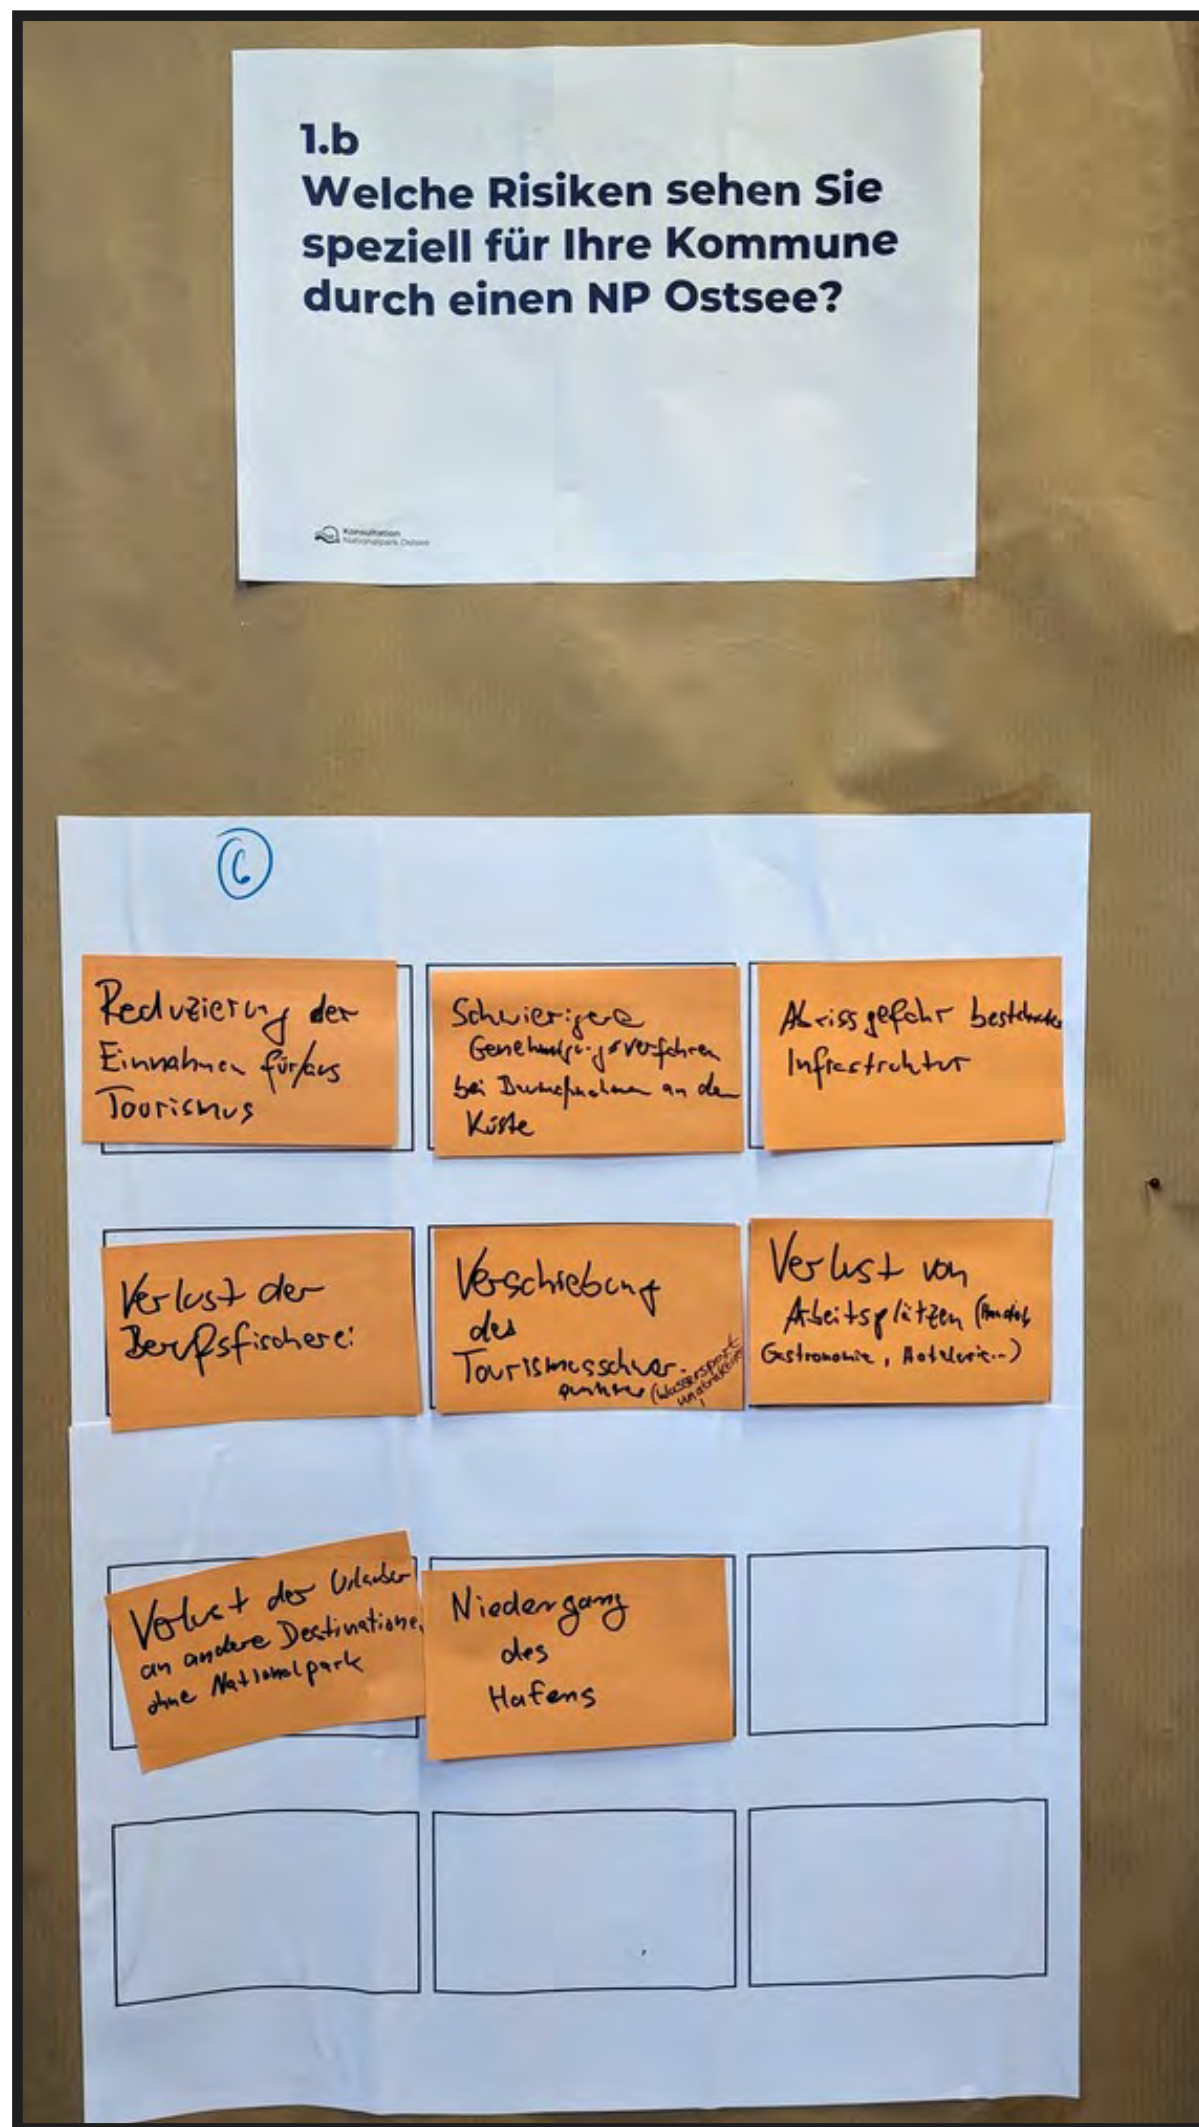 1.b
Welche Risiken sehen Sie
speziell für Ihre Kommune
durch einen NP Ostsee?
Konsultation
Nationalpark Ostsee
6
Reduzierung der
Einnahmen für/aus
Tourismus
Schwierigere
Genehmigungsverfahren
bei Baumaßnahmen an der
Küste
Abrissgefahr bestehender
Infrastruktur
Verlust der
Berufsfischerei
Verschiebung
des
Tourismusschwer-
punktes (Wassersport
unattraktiv)
Verlust von
Arbeitsplätzen (Handel,
Gastronomie, Hotelerie...)
Verlust der Urlauber
an andere Destinationen
ohne Nationalpark
Niedergang
des
Hafens